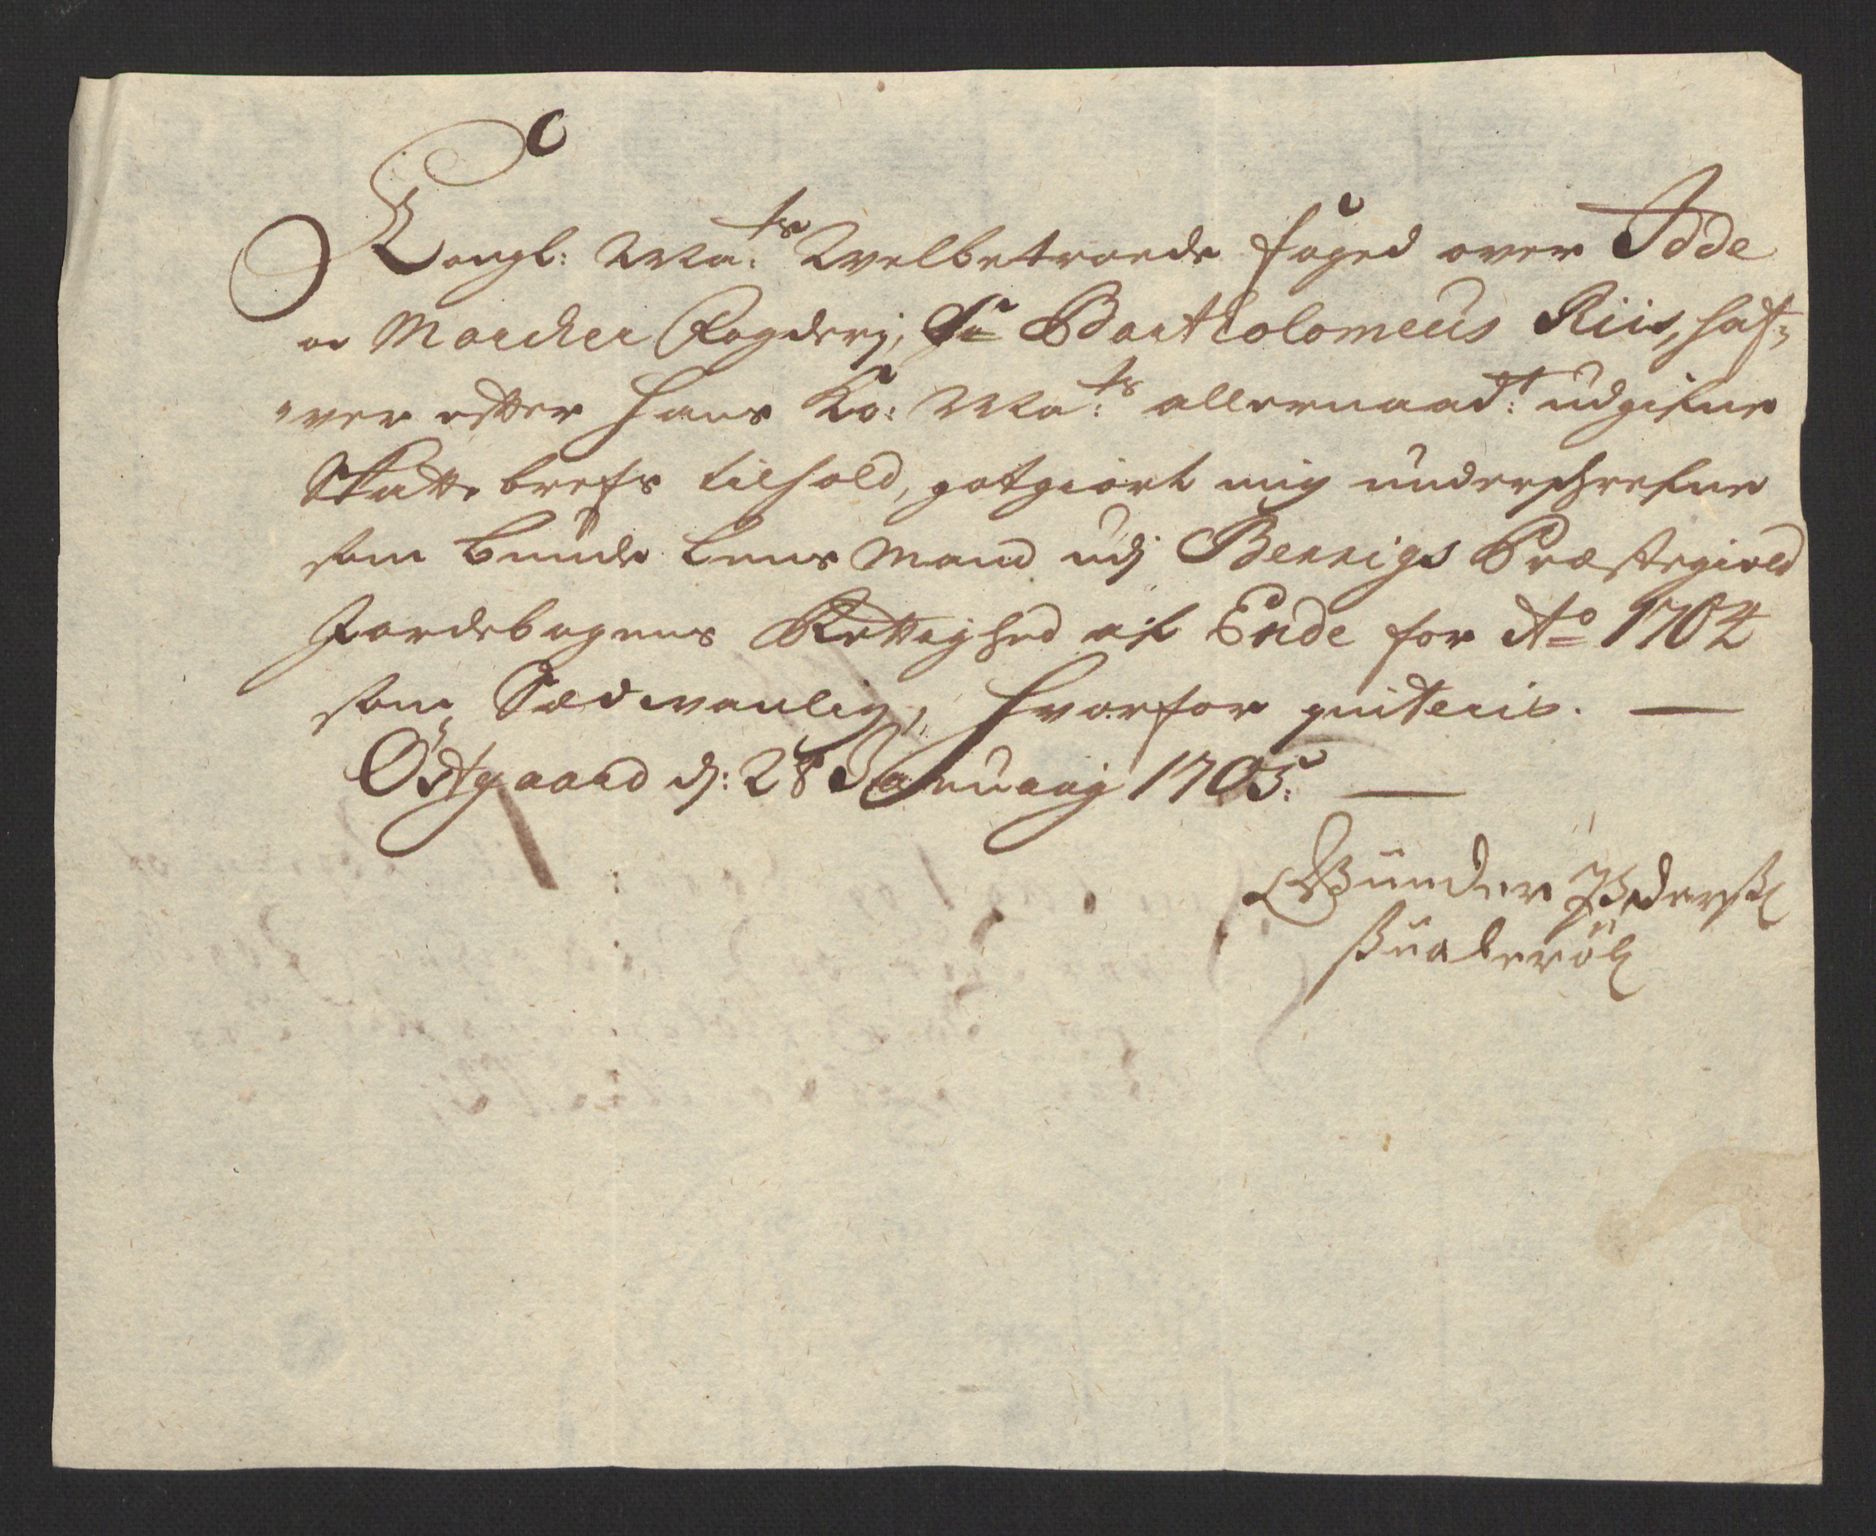 C
Kongl: Ma:ts Welbetroede foged over Idde
oc Marcker Fogderj, Sr Bartholomeus Riis, haf=
=ver efter Hans Ko: Ma:ts allernaadt: udgifne
Skatte brefs tilhold, gotgiort mig underschrefne
som bunde Lens Mand udj Berrigs Præstegield
Jordebogens Rettighed af Ende for Ao 1704
som Sædwanlig, hvorfor quiteris. —
Östgaard d: 28 Januarij 1705. —
Gunder Pederßøn